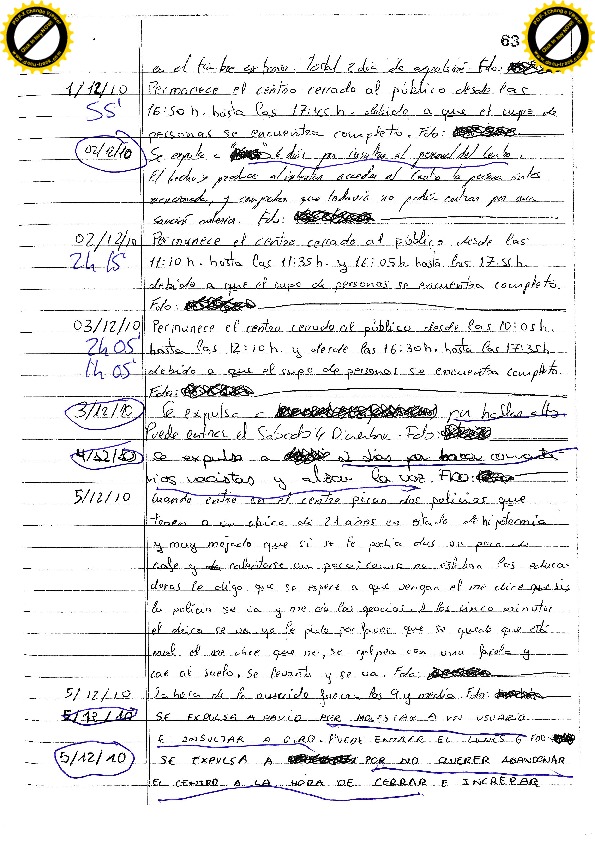 63
en el timbre Total 2 día de expulsión Fdo:
1/12/10 Permanece el centro cerrado al público desde las
55' 16:50h. hasta las 17:45h. debido a que el cupo de
personas se encuentra completo. Fdo:
02/12/10 Se expulsa a 6 días por insultar al personal del Centro.
El hecho se produce al intentar acceder al Centro la persona antes
mencionada, y comprobar que todavía no podía entrar por una
sanción anterior. Fdo:
02/12/10 Permanece el centro cerrado al público desde las
2h 15' 11:10h. hasta las 11:35h. y 16:05h hasta las 17:55h.
debido a que el cupo de personas se encuentra completo.
Fdo:
03/12/10 Permanece el centro cerrado al público desde las 10:05h.
2h 05' hasta las 12:10h. y desde las 16:30h. hasta las 17:35h
1h 05' debido a que el cupo de personas se encuentra completo.
Fdo:
3/12/10 Se expulsa a por hablar alto
Puede entrar el Sabado 4 Diciembre. Fdo:
4/12/10 Se expulsa a días por hacer comenta
rios racistas y alzar la voz. Fdo:
5/12/10 Cuando entre en el centro pican dos policias que
tenen a un chico de 21 años en estado de hipotermia
y muy mojado que si se le podia dar un poco de
cafe y calentarse un poco como no estaban las educa
doras le digo que se espere a que vengan el me dice que si
la policia se va y me da las gracias. A los cinco minutos
el chico se va ya le pido por favor que se quede que está
mal. el me dice que no, se golpea con una farola y
cae al suelo, se levanta y se va. Fdo:
5/12/10 La hora de lo fueron las 9 y media Fdo:
5/12/10 SE EXPULSA A DAVID POR MOLESTAR A UN USUARIO
E INSULTAR A OTRO. PUEDE ENTRAR EL LUNES 6 FDO:
5/12/10 SE EXPULSA A POR NO QUERER ABANDONAR
EL CENTRO A LA HORA DE CERRAR E INCREPAR